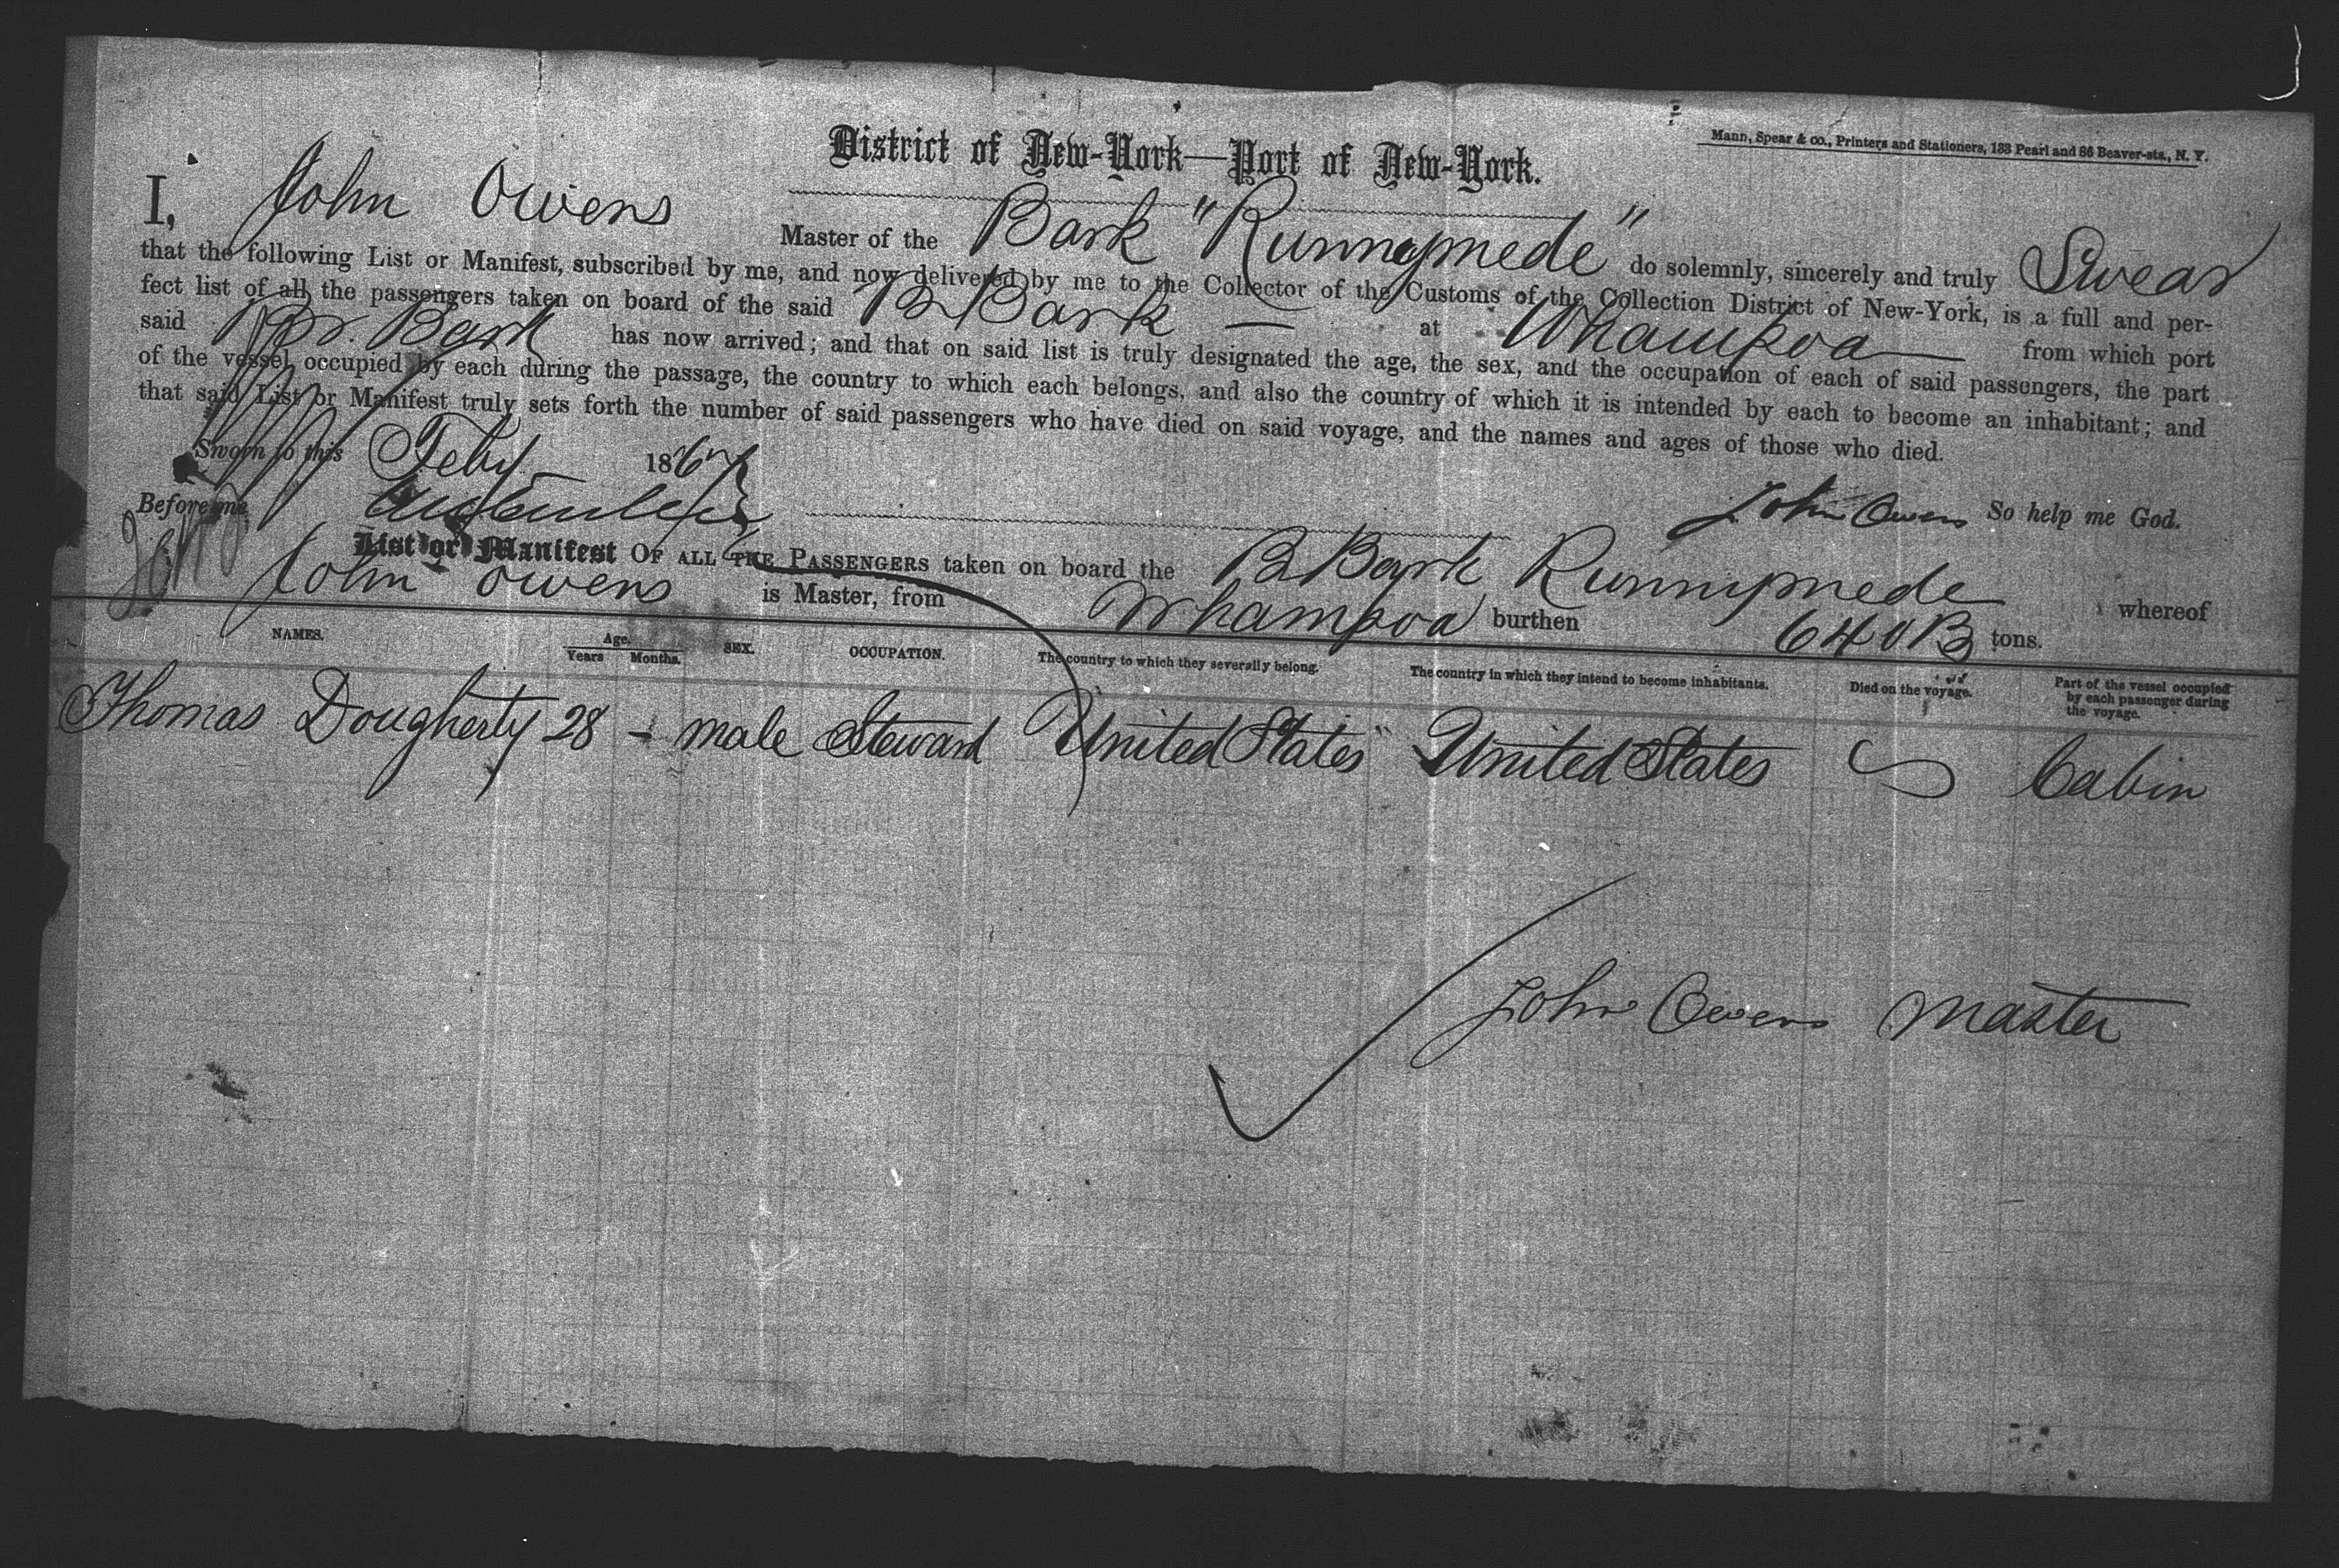 Mann, Spear & co., Printers and Stationers, 183 Pearl and 86 Beaver-sts., N. Y.
District of New-York—Port of New-York.
I, John Owens Master of the Bark "Runnymede" do solemnly, sincerely and truly Swear
that the following List or Manifest, subscribed by me, and now delivered by me to the Collector of the Customs of the Collection District of New-York, is a full and per-
fect list of all the passengers taken on board of the said B Bark — at Whampoa from which port
said Br. Bark has now arrived; and that on said list is truly designated the age, the sex, and the occupation of each of said passengers, the part
of the vessel occupied by each during the passage, the country to which each belongs, and also the country of which it is intended by each to become an inhabitant; and
that said List or Manifest truly sets forth the number of said passengers who have died on said voyage, and the names and ages of those who died.
Sworn to this Feby 1867
Before me John Owens So help me God.
List or Manifest OF ALL THE PASSENGERS taken on board the B Bark Runnymede whereof
John Owens is Master, from Whampoa burthen 640 tons.
NAMES. Age. Years Months. SEX. OCCUPATION. The country to which they severally belong. The country in which they intend to become inhabitants. Died on the voyage. Part of the vessel occupied by each passenger during the voyage.
Thomas Dougherty 28 - male Steward United States United States Cabin
John Owens Master